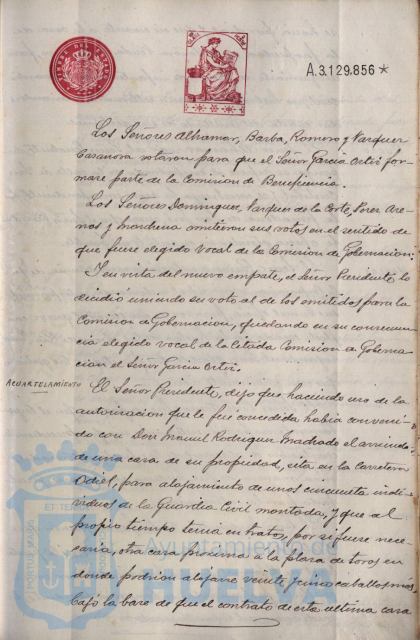 A.3.129.856*
Los Señores Alhramar, Barba, Romero y Vazquez
Casanova votaron para que el Señor Garcia Ortiz for-
mare parte de la Comision de Beneficencia.
Los Señores Dominguez, Vazquez de la Corte, Perez Are-
nos y Marchena emitieron sus votos en el sentido de
que fuere elegido Vocal de la Comision de Gobernacion.
Y en vista del nuevo empate, el Señor Presidente, lo
decidió uniendo su voto al de los emitidos para la
Comision de Gobernacion, quedando en su consecuen-
cia elegido vocal de la citada Comision de Goberna-
cion el Señor Garcia Ortiz.
ACUARTELAMIENTO
El Señor Presidente, dijo que haciendo uso de la
autorizacion que le fué concedida habia conveni-
do con Don Manuel Rodriguez Machado el arriendo
de una casa de su propiedad, sita en la Carretera
Odiel, para alojamiento de unos cincuenta indi-
viduos de la Guardia Civil montada, y que al
propio tiempo tenia en tratos, por si fuere nece-
saria, otra casa proxima á la plaza de toros en
donde podrian alojarse veinte y cinco caballos mas
bajo la base de que el contrato de esta ultima casa
Ayuntamiento de
HUELVA